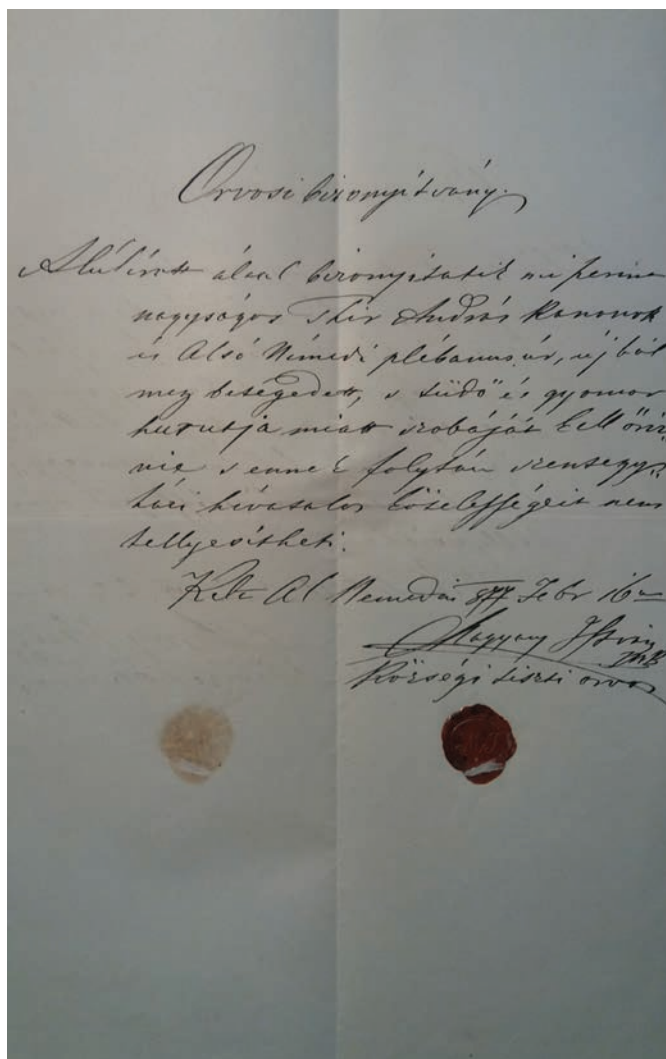 Orvosi bizonyítvány.
Alulírott által bizonyítatik miszerint
nagyságos Thir András Kanonok
és Alsó Némedi plébanus úr, ujból
meg betegedett, s tüdő és gyomor
hurutja miatt szobáját kell őriz
nie s ennek folytán szentegy
házi hivatalos kötelességeit nem
tellyesítheti.
Kelt Al Nemedin 877 Febr 16án
Községi tiszti orvos